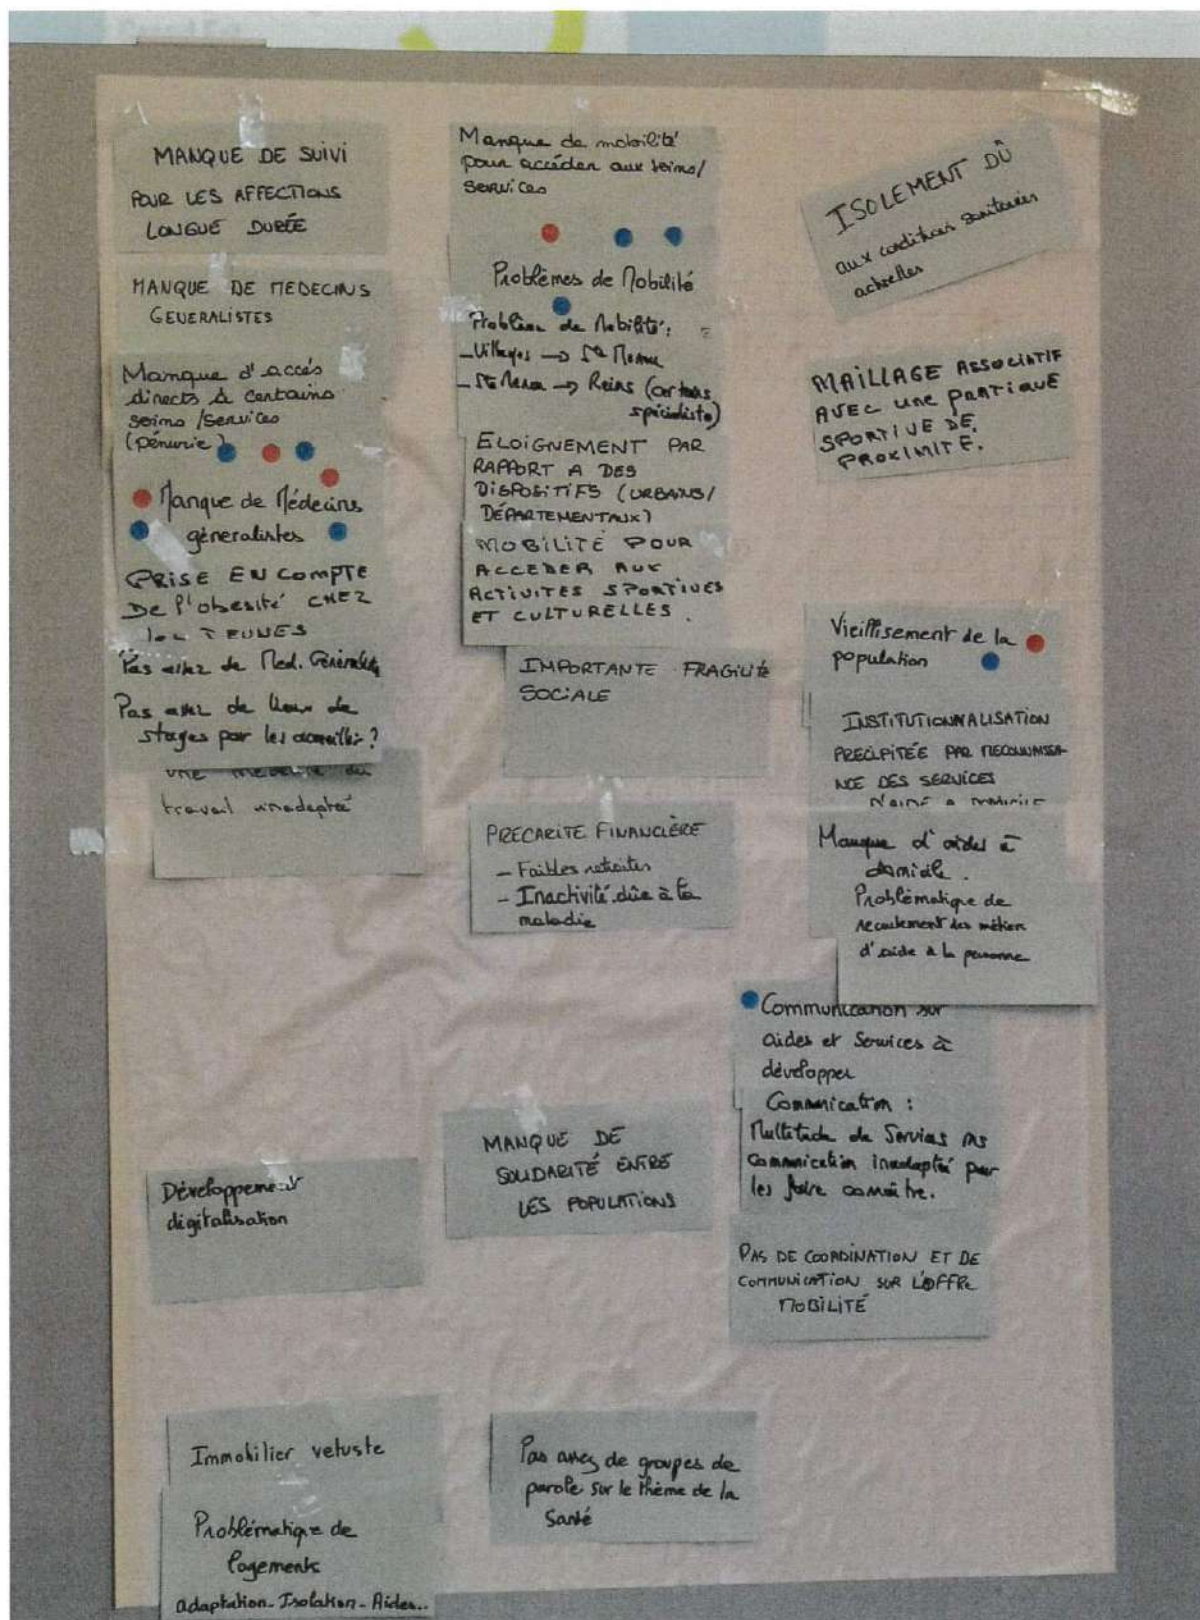 MANQUE DE SUIVI
POUR LES AFFECTIONS
LONGUE DURÉE
MANQUE DE MEDECINS
GENERALISTES
Manque d'accès
directs à certains
soins/services
(pénurie)
Manque de Médecins
géneralistes
PRISE EN COMPTE
De l'obesité CHEZ
les JEUNES
Pas assez de Med. Généraliste
Pas assez de lieux de
stages pour les accueillir ?
UNE MEDECINE du
travail inadaptée
Développement
digitalisation
Immobilier vetuste
Problématique de
logements
adaptation - Isolation - Aides..
Manque de mobilité
pour accéder aux soins/
services
Problèmes de Mobilité
Problème de Mobilité :
- Villages → Ste Menou
- Ste Menou → Reims (certains
spécialiste)
ELOIGNEMENT PAR
RAPPORT A DES
DISPOSITIFS (URBAINS/
DÉPARTEMENTAUX)
MOBILITÉ POUR
ACCEDER AUX
ACTIVITES SPORTIVES
ET CULTURELLES.
IMPORTANTE FRAGILITÉ
SOCIALE
PRECARITE FINANCIÈRE
- Faibles retraites
- Inactivité dûe à la
maladie
MANQUE DE
SOLIDARITÉ ENTRE
LES POPULATIONS
Pas assez de groupes de
parole sur le thème de la
Santé
ISOLEMENT DÛ
aux conditions sanitaires
actuelles
MAILLAGE ASSOCIATIF
AVEC une PRATIQUE
SPORTIVE DE
PROXIMITE.
Vieillisement de la
population
INSTITUTIONNALISATION
PRÉCIPITÉE PAR MECONNAISSA-
NCE DES SERVICES
Manque d'aides à
domicile.
Problématique de
recrutement des métiers
d'aide à la personne
Communication sur
aides et Services à
développer
Communication :
Multitude de Services ms
communication inadaptée pour
les faire connaître.
PAS DE COORDINATION ET DE
COMMUNICATION SUR L'OFFRE
MOBILITÉ